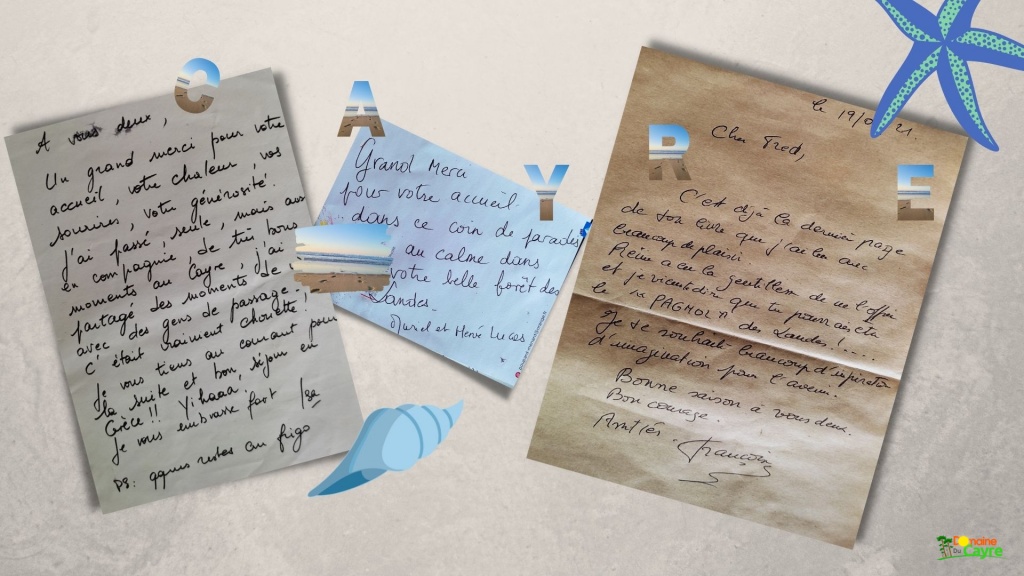 C A Y R E
A vous deux,
Un grand merci pour votre
accueil, votre chaleur, vos
sourires, votre générosité.
J'ai passé, seule, mais aussi
en compagnie, de très bons
moments au Cayre, j'ai
partagé des moments de
avec des gens de passage.
C'était vraiment chouette!
Je vous tiens au courant pour
la suite et bon séjour en
Grèce!! Yihaaa,
Je vous embrasse fort
PS: qques restes au frigo
Grand Merci
pour votre accueil
dans ce coin de paradis
au calme dans
votre belle forêt des
Landes.
et Hervé Lucas
le 19/0 21.
Cher Fred,
C'est déjà la dernière page
de ton livre que j'ai lu avec
beaucoup de plaisir.
a eu la gentillesse de me l'offrir
et je que tu pourrais etre
le "PAGNOL" des Landes!....
Je te souhaite beaucoup d'inspiration
d'imagination pour l'avenir.
Bonne saison à vous deux.
Bon courage.
Amitiés. François
Domaine
Du Cayre